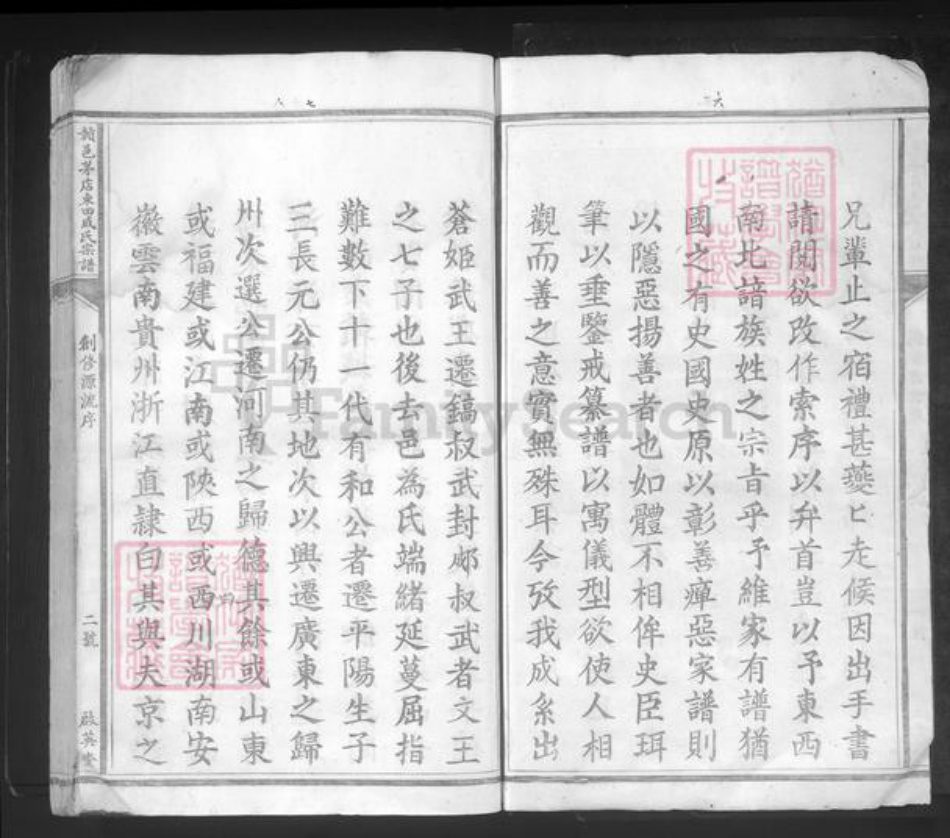 六
兄輩止之宿禮甚虁匕走候因出手書
請閱欲改作索序以弁首豈以予東西
南北諳族姓之宗旨乎予維家有譜猶
國之有史國史原以彰善癉惡家譜則
以隱惡揚善者也如體不相侔史臣珥
筆以垂鑒戒纂譜以寓儀型欲使人相
觀而善之意實無殊耳今攷我成系出
七
蒼姬武王遷鎬叔武封郕叔武者文王
之七子也後去邑為氏端緒延蔓屈指
難數下十一代有和公者遷平陽生子
三長元公仍其地次以興遷廣東之歸
州次選公遷河南之歸德其餘或山東
或福建或江南或陝西或西川湖南安
徽雲南貴州浙江直隸白其與大京之
諸邑茅店東田成氏宗譜
創修源流序
二號
啟英堂
FamilySearch